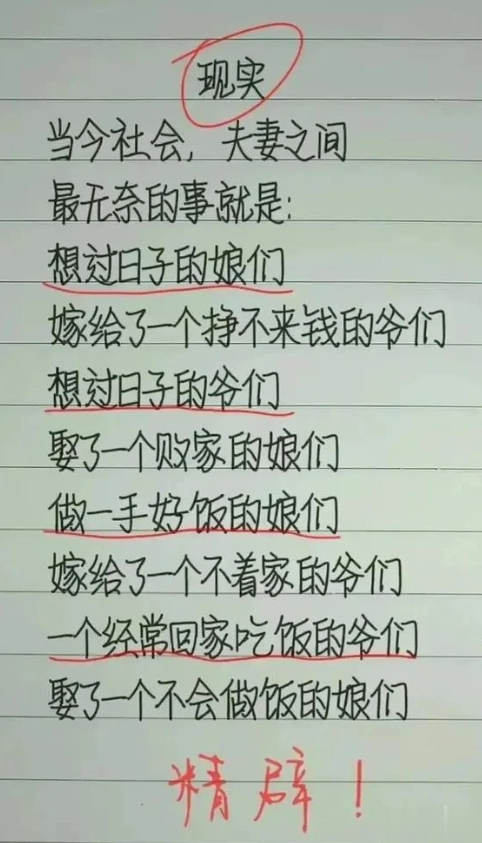 现实
当今社会，夫妻之间
最无奈的事就是：
想过日子的娘们
嫁给了一个挣不来钱的爷们
想过日子的爷们
娶了一个败家的娘们
做一手好饭的娘们
嫁给了一个不着家的爷们
一个经常回家吃饭的爷们
娶了一个不会做饭的娘们
精辟！